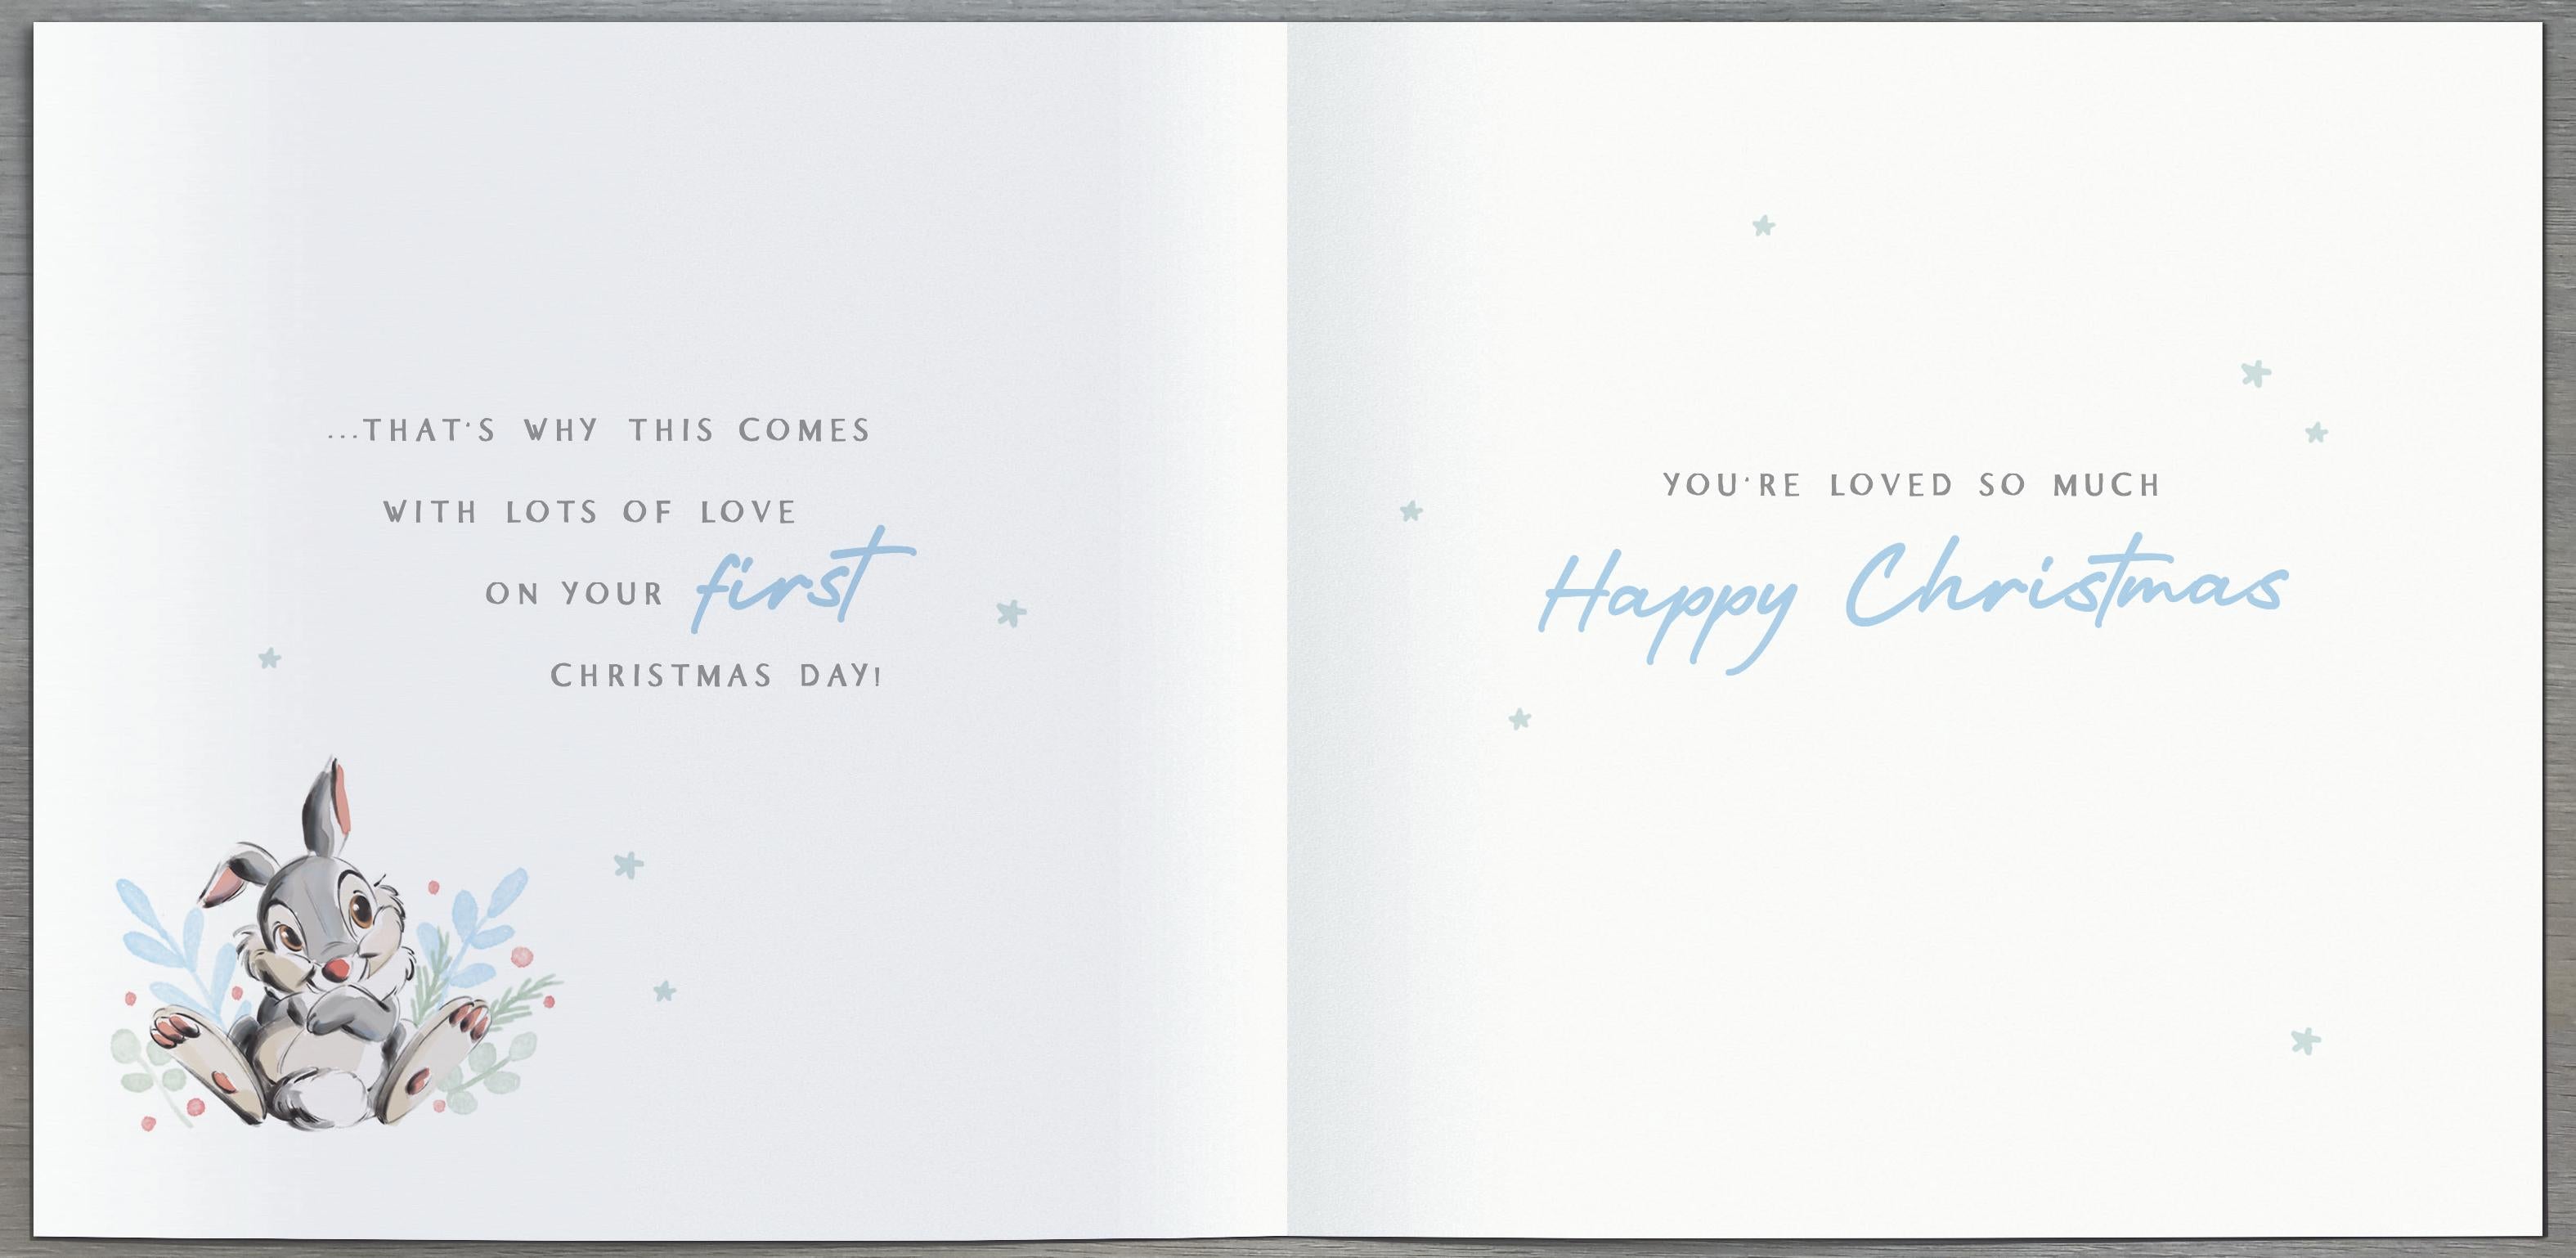 ...THAT'S WHY THIS COMES
WITH LOTS OF LOVE
ON YOUR first
CHRISTMAS DAY!
YOU'RE LOVED SO MUCH
Happy Christmas